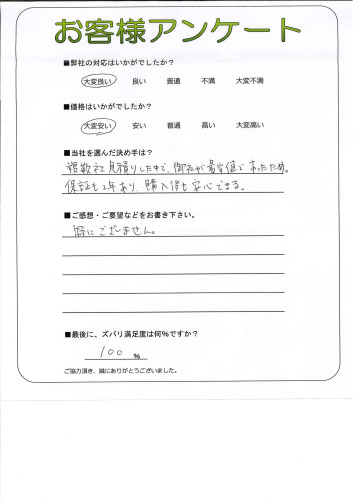 お客様アンケート
■弊社の対応はいかがでしたか?
大変良い 良い 普通 不満 大変不満
■価格はいかがでしたか?
大変安い 安い 普通 高い 大変高い
■当社を選んだ決め手は?
複数社見積りした中で、御社が最安値であったため。
保証も2年あり、購入後も安心できる。
■ご感想・ご要望などをお書き下さい。
特にございません。
■最後に、ズバリ満足度は何%ですか?
100 %
ご協力頂き、誠にありがとうございました。